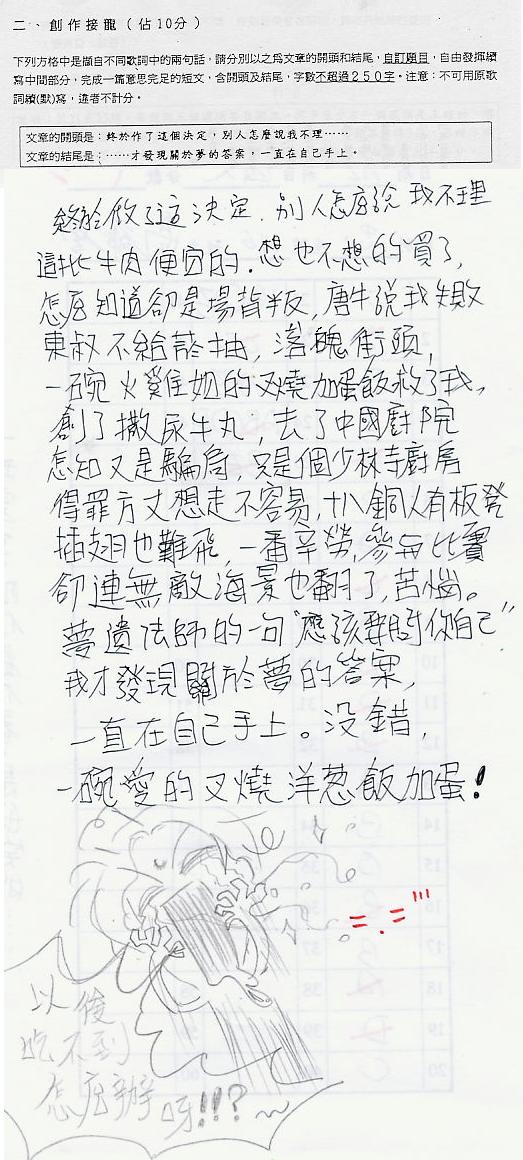 二、創作接龍（佔10分）
下列方格中是擷自不同歌詞中的兩句話，請分別以之為文章的開頭和結尾，自訂題目，自由發揮續
寫中間部分，完成一篇意思完足的短文，含開頭及結尾，字數不超過２５０字。注意：不可用原歌
詞續(默)寫，違者不計分。
文章的開頭是：終於作了這個決定，別人怎麼說我不理……
文章的結尾是：……才發現關於夢的答案，一直在自己手上。
終於做了這決定，別人怎麼說 我不理
這批牛肉便宜的，想也不想的買了，
怎麼知道卻是場背叛，唐牛說我失敗
東叔不給菸抽，落魄街頭，
一碗火雞姐的叉燒加蛋飯救了我，
創了撒尿牛丸，去了中國廚院
怎知又是騙局，只是個少林寺廚房
得罪方丈想走不容易，十八銅人有板凳
插翅也難飛，一番辛勞，參與比賽
卻連無敵海景也翻了，苦惱。
夢遺法師的一句"應該要問你自己"
我才發現關於夢的答案，
一直在自己手上。沒錯，
一碗愛的叉燒洋葱飯加蛋！
=.="'
以後
吃不到
怎麼辦呀!!?~